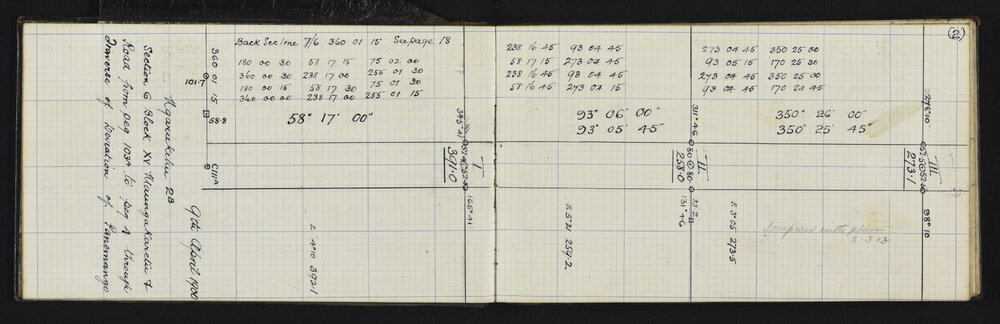 Traverse of Deviation of Panemango
Road from peg 103A to peg 4 through
Section 6 Block XV Maungakaretu &
Ngarukehu 2B
9th April 1900
Back Sec line 7/6 360 01 15 See page 18
180 00 30 58 17 15 75 02 00
360 00 30 238 17 00 255 01 30
180 00 15 58 17 30 75 01 30
360 00 00 238 17 00 255 01 15
58° 17' 00"
360 01 15
101.7
58.8
C111A
345° 41
I
391.0
165° 41
E 4°10 392.1
238 16 45 93 04 45
58 17 15 273 04 45
238 16 45 93 04 45
58 16 45 273 04 15
93° 06' 00"
93° 05' 45"
311° 46
II
258.0
131° 46
E 5°21 259.2
273 04 45 350 25 00
93 05 15 170 25 30
273 04 45 350 25 00
93 04 45 170 24 45
350° 26' 00"
350° 25' 45"
III
273.1
98° 10
E 3°05 273.5
Compared with plan
2.3.03
(2)